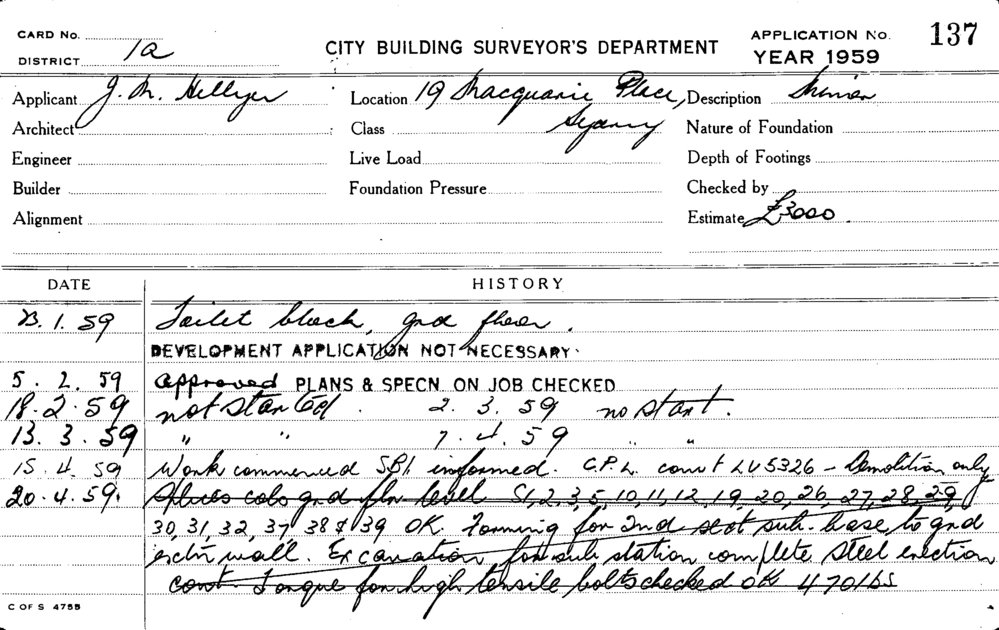 CARD No.
DISTRICT 1a
CITY BUILDING SURVEYOR'S DEPARTMENT
APPLICATION No. 137
YEAR 1959
Applicant J. M. Hellyer
Location 19 Macquarie Place, Sydney
Description Minor
Architect
Class
Nature of Foundation
Engineer
Live Load
Depth of Footings
Builder
Foundation Pressure
Checked by
Alignment
Estimate £3000.
DATE HISTORY
23.1.59 Toilet block, gnd floor.
DEVELOPMENT APPLICATION NOT NECESSARY.
5.2.59 approved PLANS & SPECN. ON JOB CHECKED
18.2.59 not started. 2.3.59 no start.
13.3.59 " " 7.4.59 " "
15.4.59 Work commenced informed. C.P.L. LU5326 - Demolition only
20.4.59. cols gnd fln level S1, 2, 3, 5, 10, 11, 12, 19, 20, 26, 27, 28, 29,
30, 31, 32, 37 38 & 39 OK. Forming for 2nd sub. base, to gnd
wall. Excavation for sub station complete Steel erection
cont Torque for high tensile bolts checked OK 470 lbs
C OF S 4755